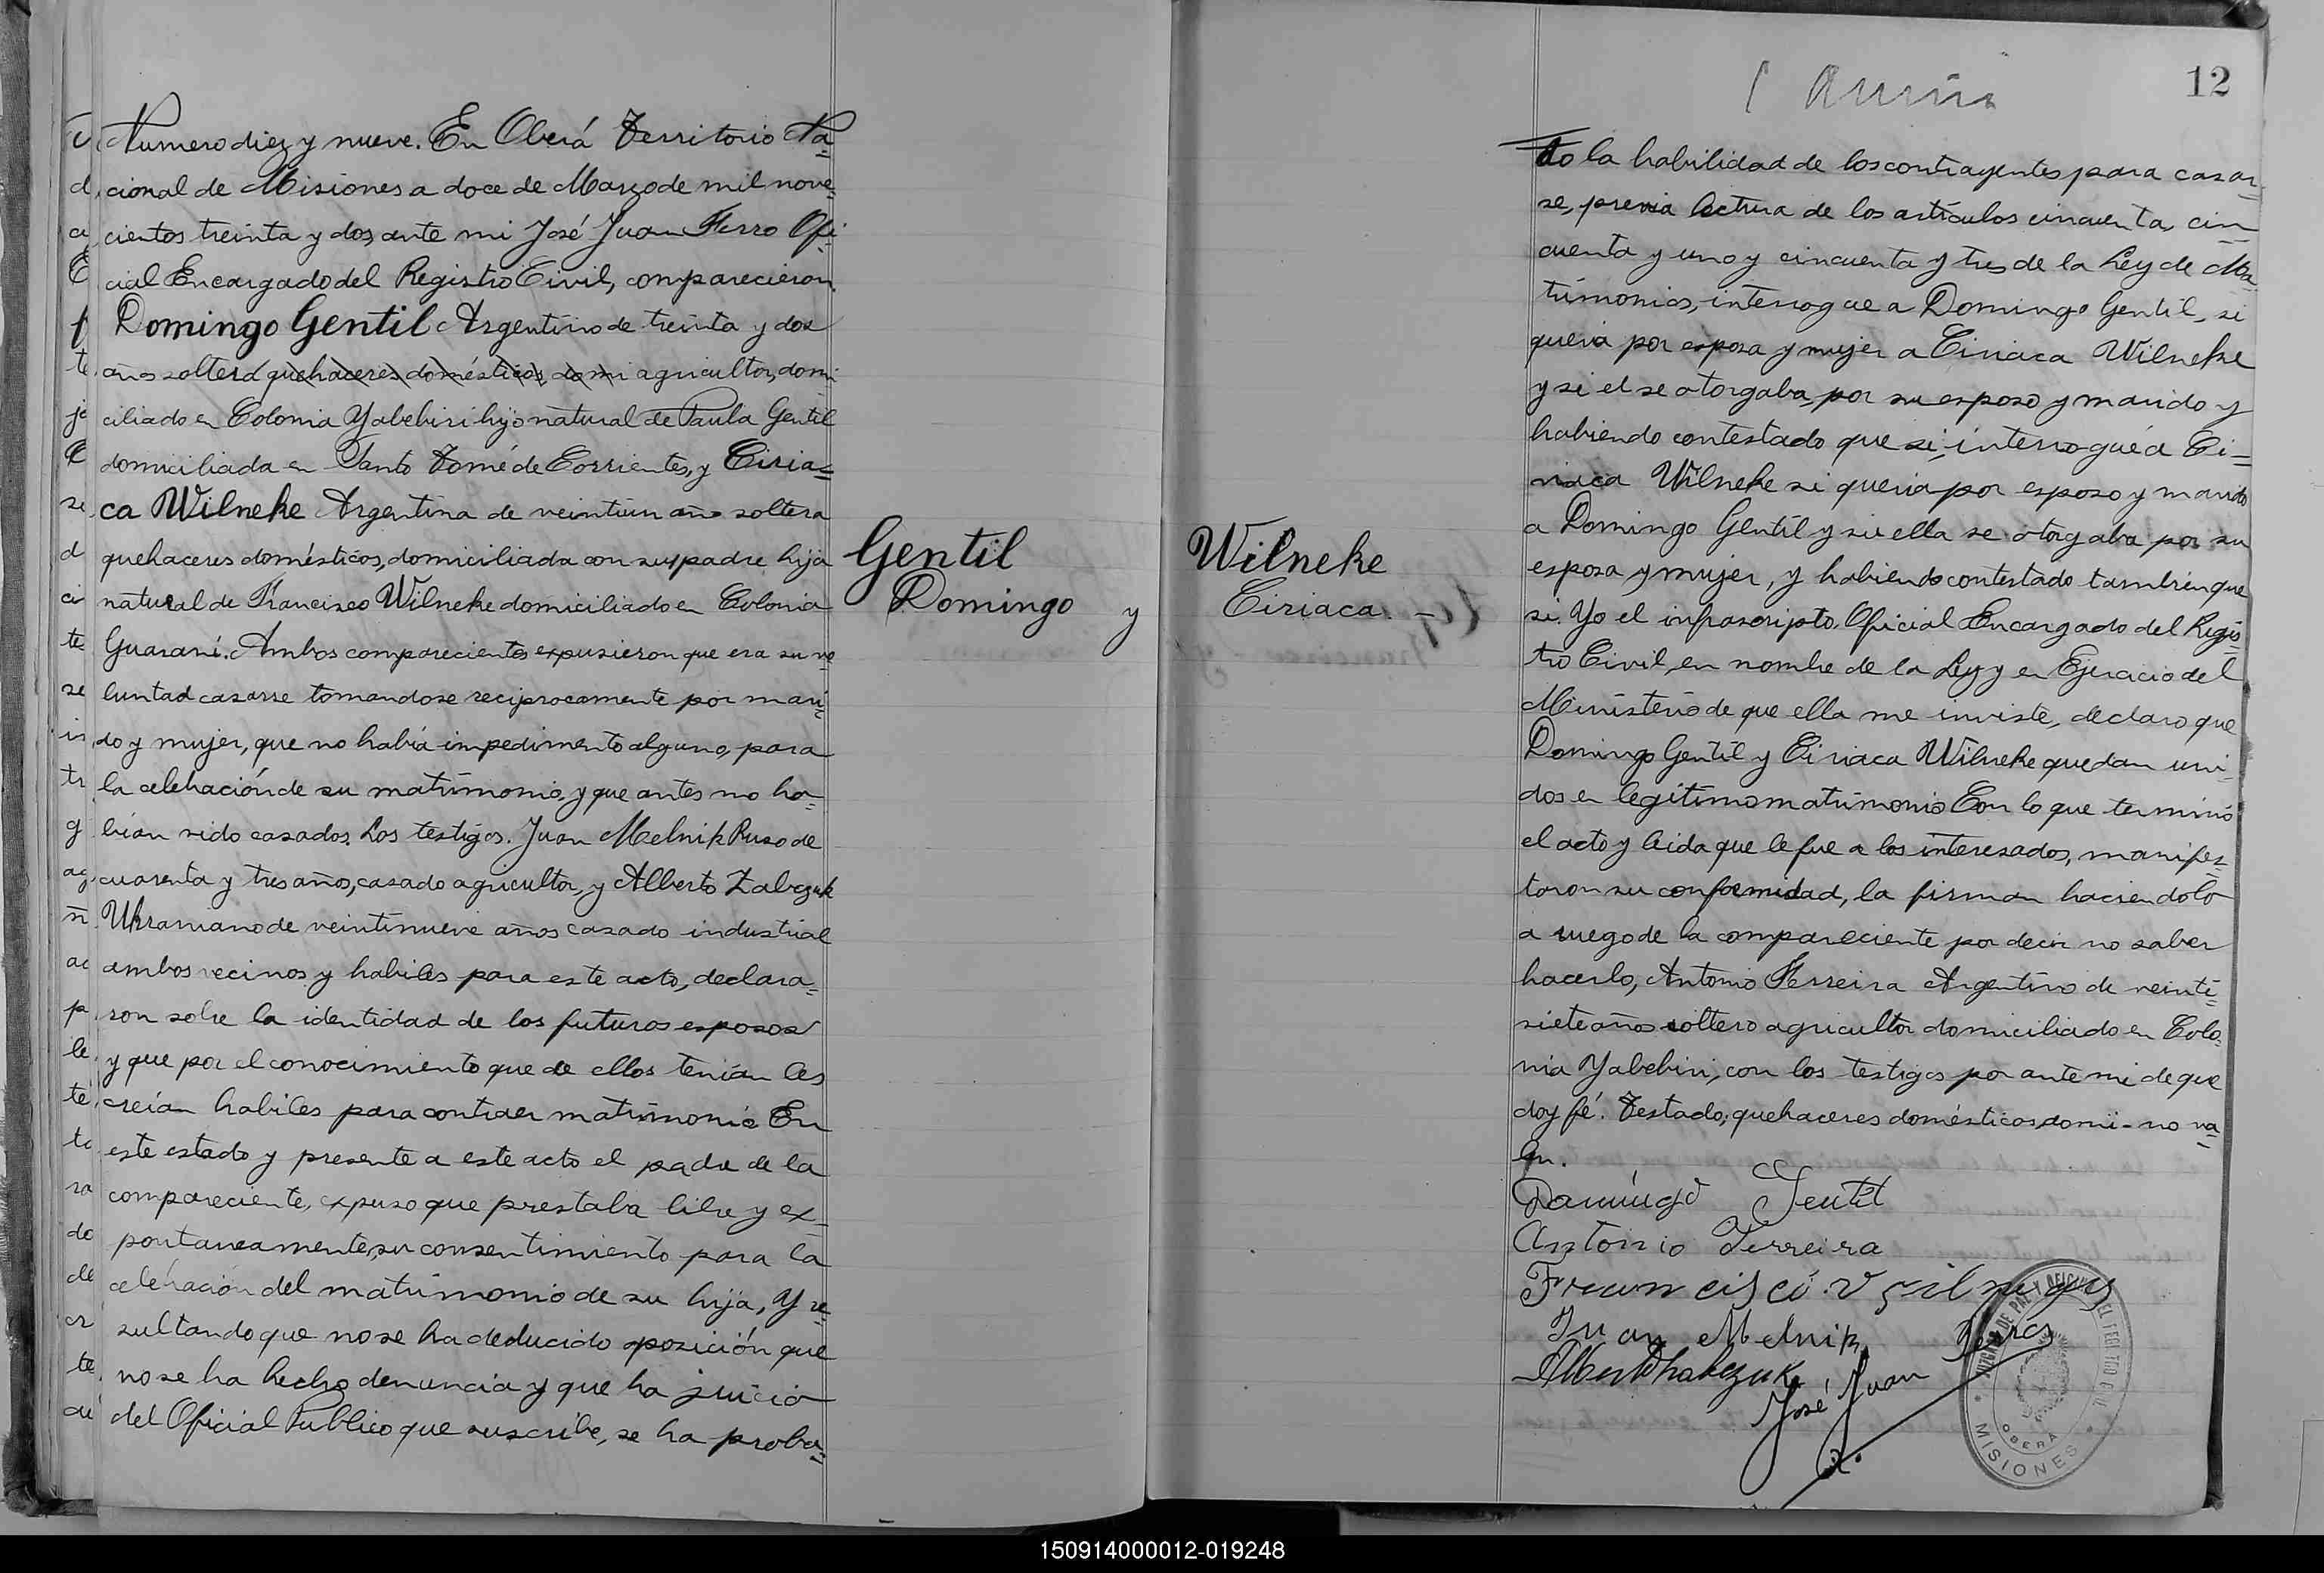 Numero diez y nueve. En Oberá Territorio Na=
cional de Misiones a doce de Marzo de mil nove=
cientos treinta y dos, ante mi José Juan Ferro Ofi=
cial Encargado del Registro Civil, comparecieron
Domingo Gentil Argentino de treinta y dos
años soltero quehaceres domésticos, domi agricultor, domi
ciliado en Colonia Yabebiri hijo natural de Paula Gentil
domiciliada en Santo Tomé de Corrientes, y Ciria=
ca Wilneke Argentina de veintiun año soltera
quehaceres domésticos, domiciliada con su padre hija
natural de Francisco Wilneke domiciliado en Colonia
Guaraní. Ambos comparecientes expusieron que era su vo=
luntad casarse tomandose reciprocamente por mari=
do y mujer, que no había impedimento alguno, para
la celebración de su matrimonio, y que antes no ha=
bian sido casados. Los testigos. Juan Melnik Ruso de
cuarenta y tres años, casado agricultor, y Alberto Zabczuk
Ukraniano de veintinueve años casado industrial
ambos vecinos y habiles para este acto, declara=
ron sobre la identidad de los futuros esposos
y que por el conocimiento que de ellos tenían les
creían habiles para contraer matrimonio En
este estado y presente a este acto el padre de la
compareciente, expuso que prestaba libre y ex=
pontaneamente, su consentimiento para la
celebración del matrimonio de su hija, Y re=
sultando que no se ha deducido oposición que
no se ha hecho denuncia y que ha juicio
del Oficial Publico que suscribe, se ha proba=
Gentil
Domingo y
Wilneke
Ciriaca. -
12
do la habilidad de los contrayentes para casar=
se, previa lectura de los artículos cincuenta, cin
cuenta y uno y cincuenta y tres de la Ley de Ma
trimonios, interrogue a Domingo Gentil, si
queria por esposa y mujer a Ciriaca Wilneke
y si el se otorgaba, por su esposo y marido y
habiendo contestado que si, interrogué a Ci=
riaca Wilneke si queria por esposo y marido
a Domingo Gentil y si ella se otorgaba por su
esposa y mujer, y habiendo contestado tambien que
si. Yo el infrascripto, Oficial Encargado del Regis=
tro Civil, en nombre de la Ley y en Ejercicio del
Ministerio de que ella me inviste, declaro que
Domingo Gentil y Ciriaca Wilneke quedan uni=
dos en legítimo matrimonio Con lo que terminó
el acto y leida que le fue a los interesados, manifes=
taron su conformidad, la firman haciendolo
a ruego de la compareciente por decir no saber
hacerlo, Antonio Ferreira Argentino de veinti=
siete años soltero agricultor domiciliado en Colo=
nia Yabebiri, con los testigos por ante mi de que
doy fé. Testado; quehaceres domésticos, domi - no va=
len.
Domingo Gentil
Antonio Ferreira
Francisco
Juan Melnik
José Juan Ferro
JUZGADO DE PAZ Y OFICINA DEL REGISTRO CIVIL
OBERÁ
MISIONES
150914000012-019248